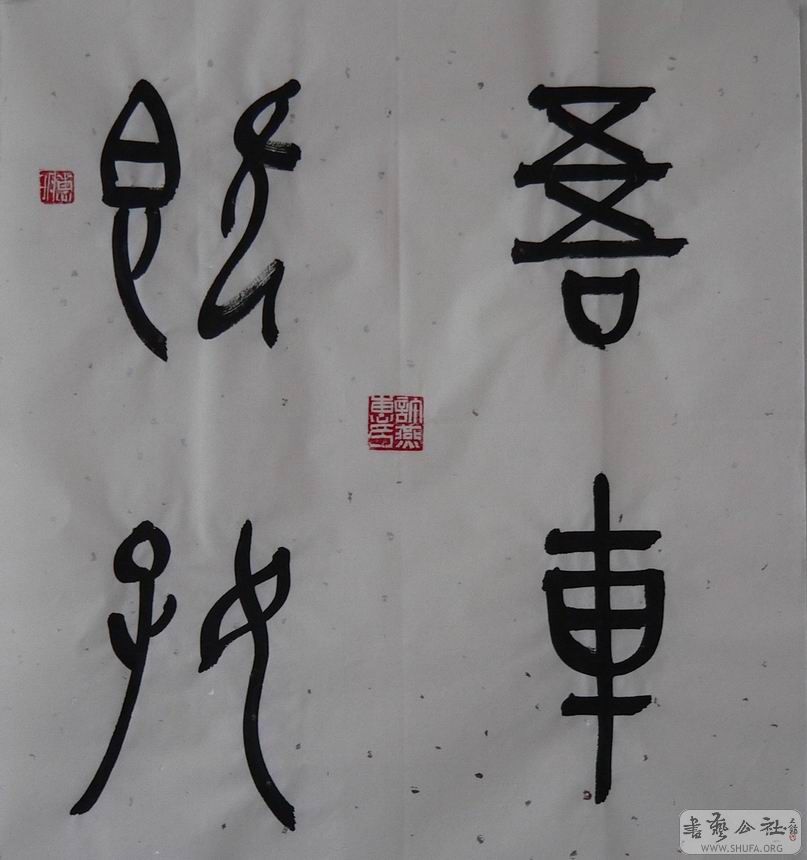 吾車
既好
書藝公社
WWW.SHUFA.ORG